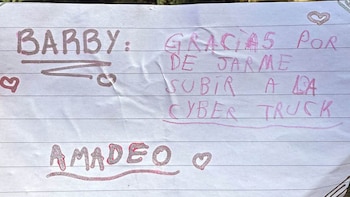 BARBY:
GRACIAS POR
DE JARME
SUBIR A LA
CYBER TRUCK
AMADEO